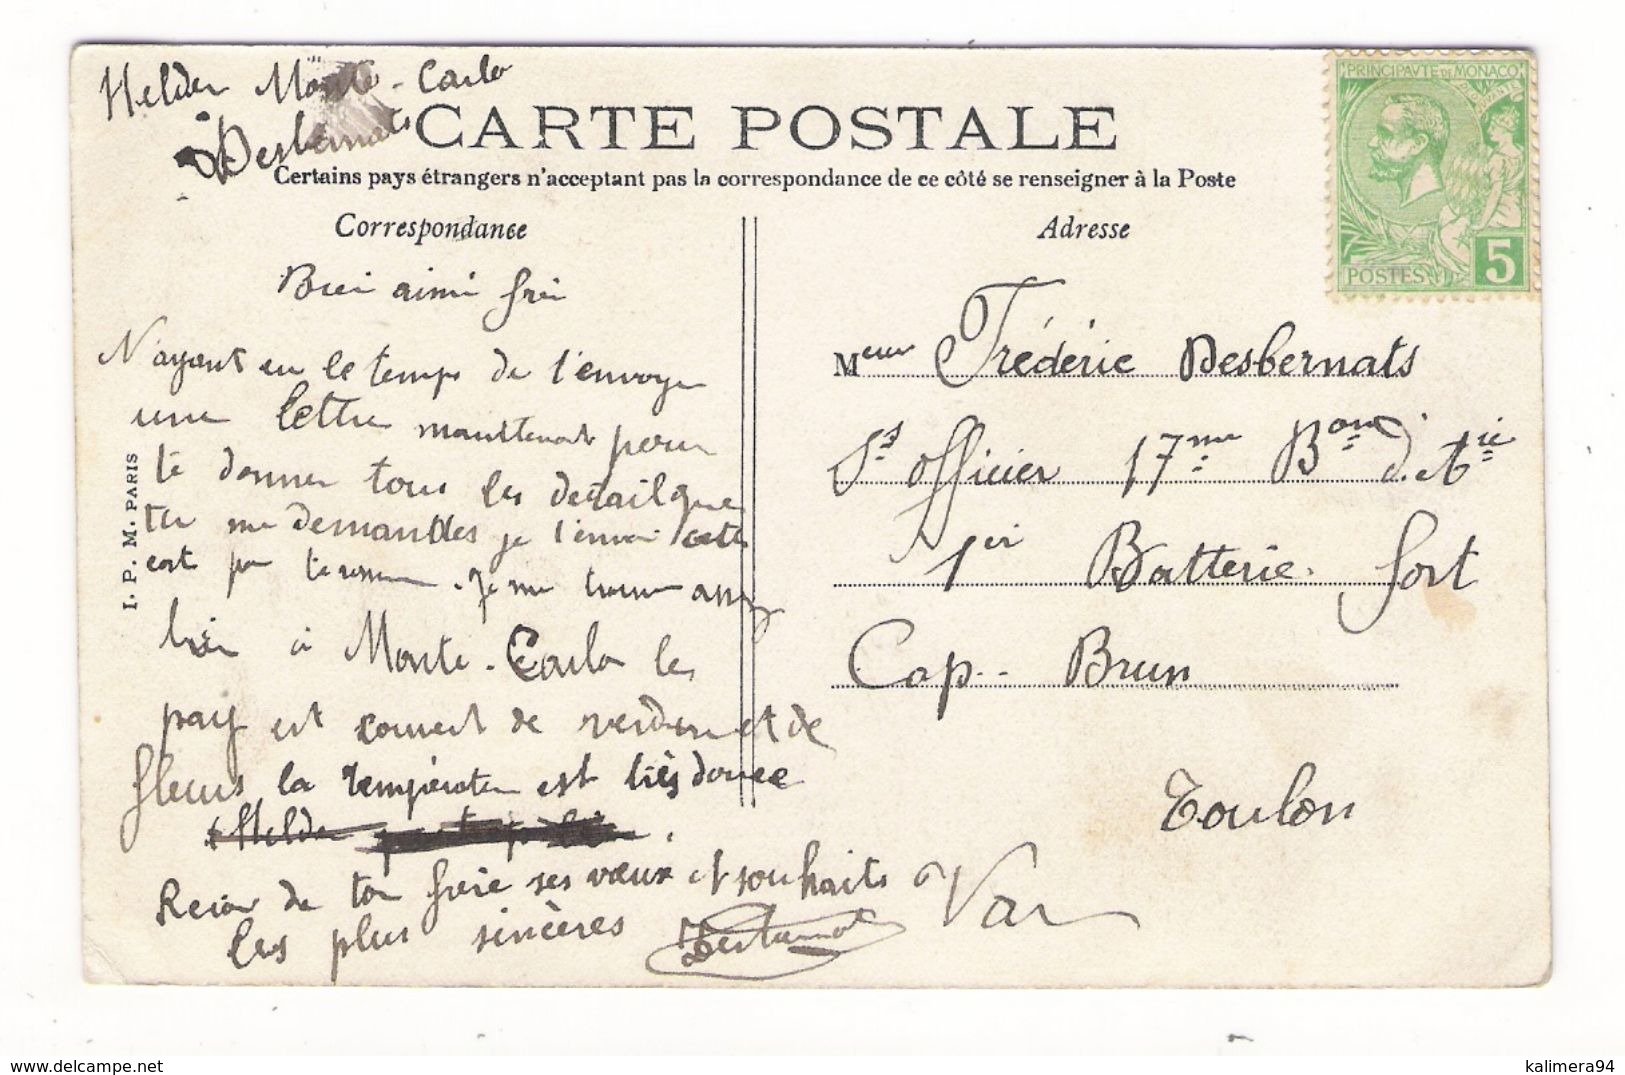 Helder Monte-Carlo
Desbernats
CARTE POSTALE
Certains pays étrangers n'acceptant pas la correspondance de ce côté se renseigner à la Poste
Correspondance
Bien aimé frère
N'ayant eu le temps de t'envoyer
une lettre maintenant pour
te donner tous les detail que
tu me demandes je t'envoi cette
cart pour . Je me trouve assez
bien à Monte-Carlo le
pay est couvert de verdure et de
fleurs la température est très douce
Helder
Recois de ton frère ses vœux et souhaits
les plus sincères Desbernats
I. P. M. PARIS
Adresse
Meur Frédéric Desbernats
Ss officier 17me Bon d'Atie
1er Batterie. fort
Cap-- Brun
Toulon
Var
PRINCIPAVTE DE MONACO
POSTES
5
kalimera94